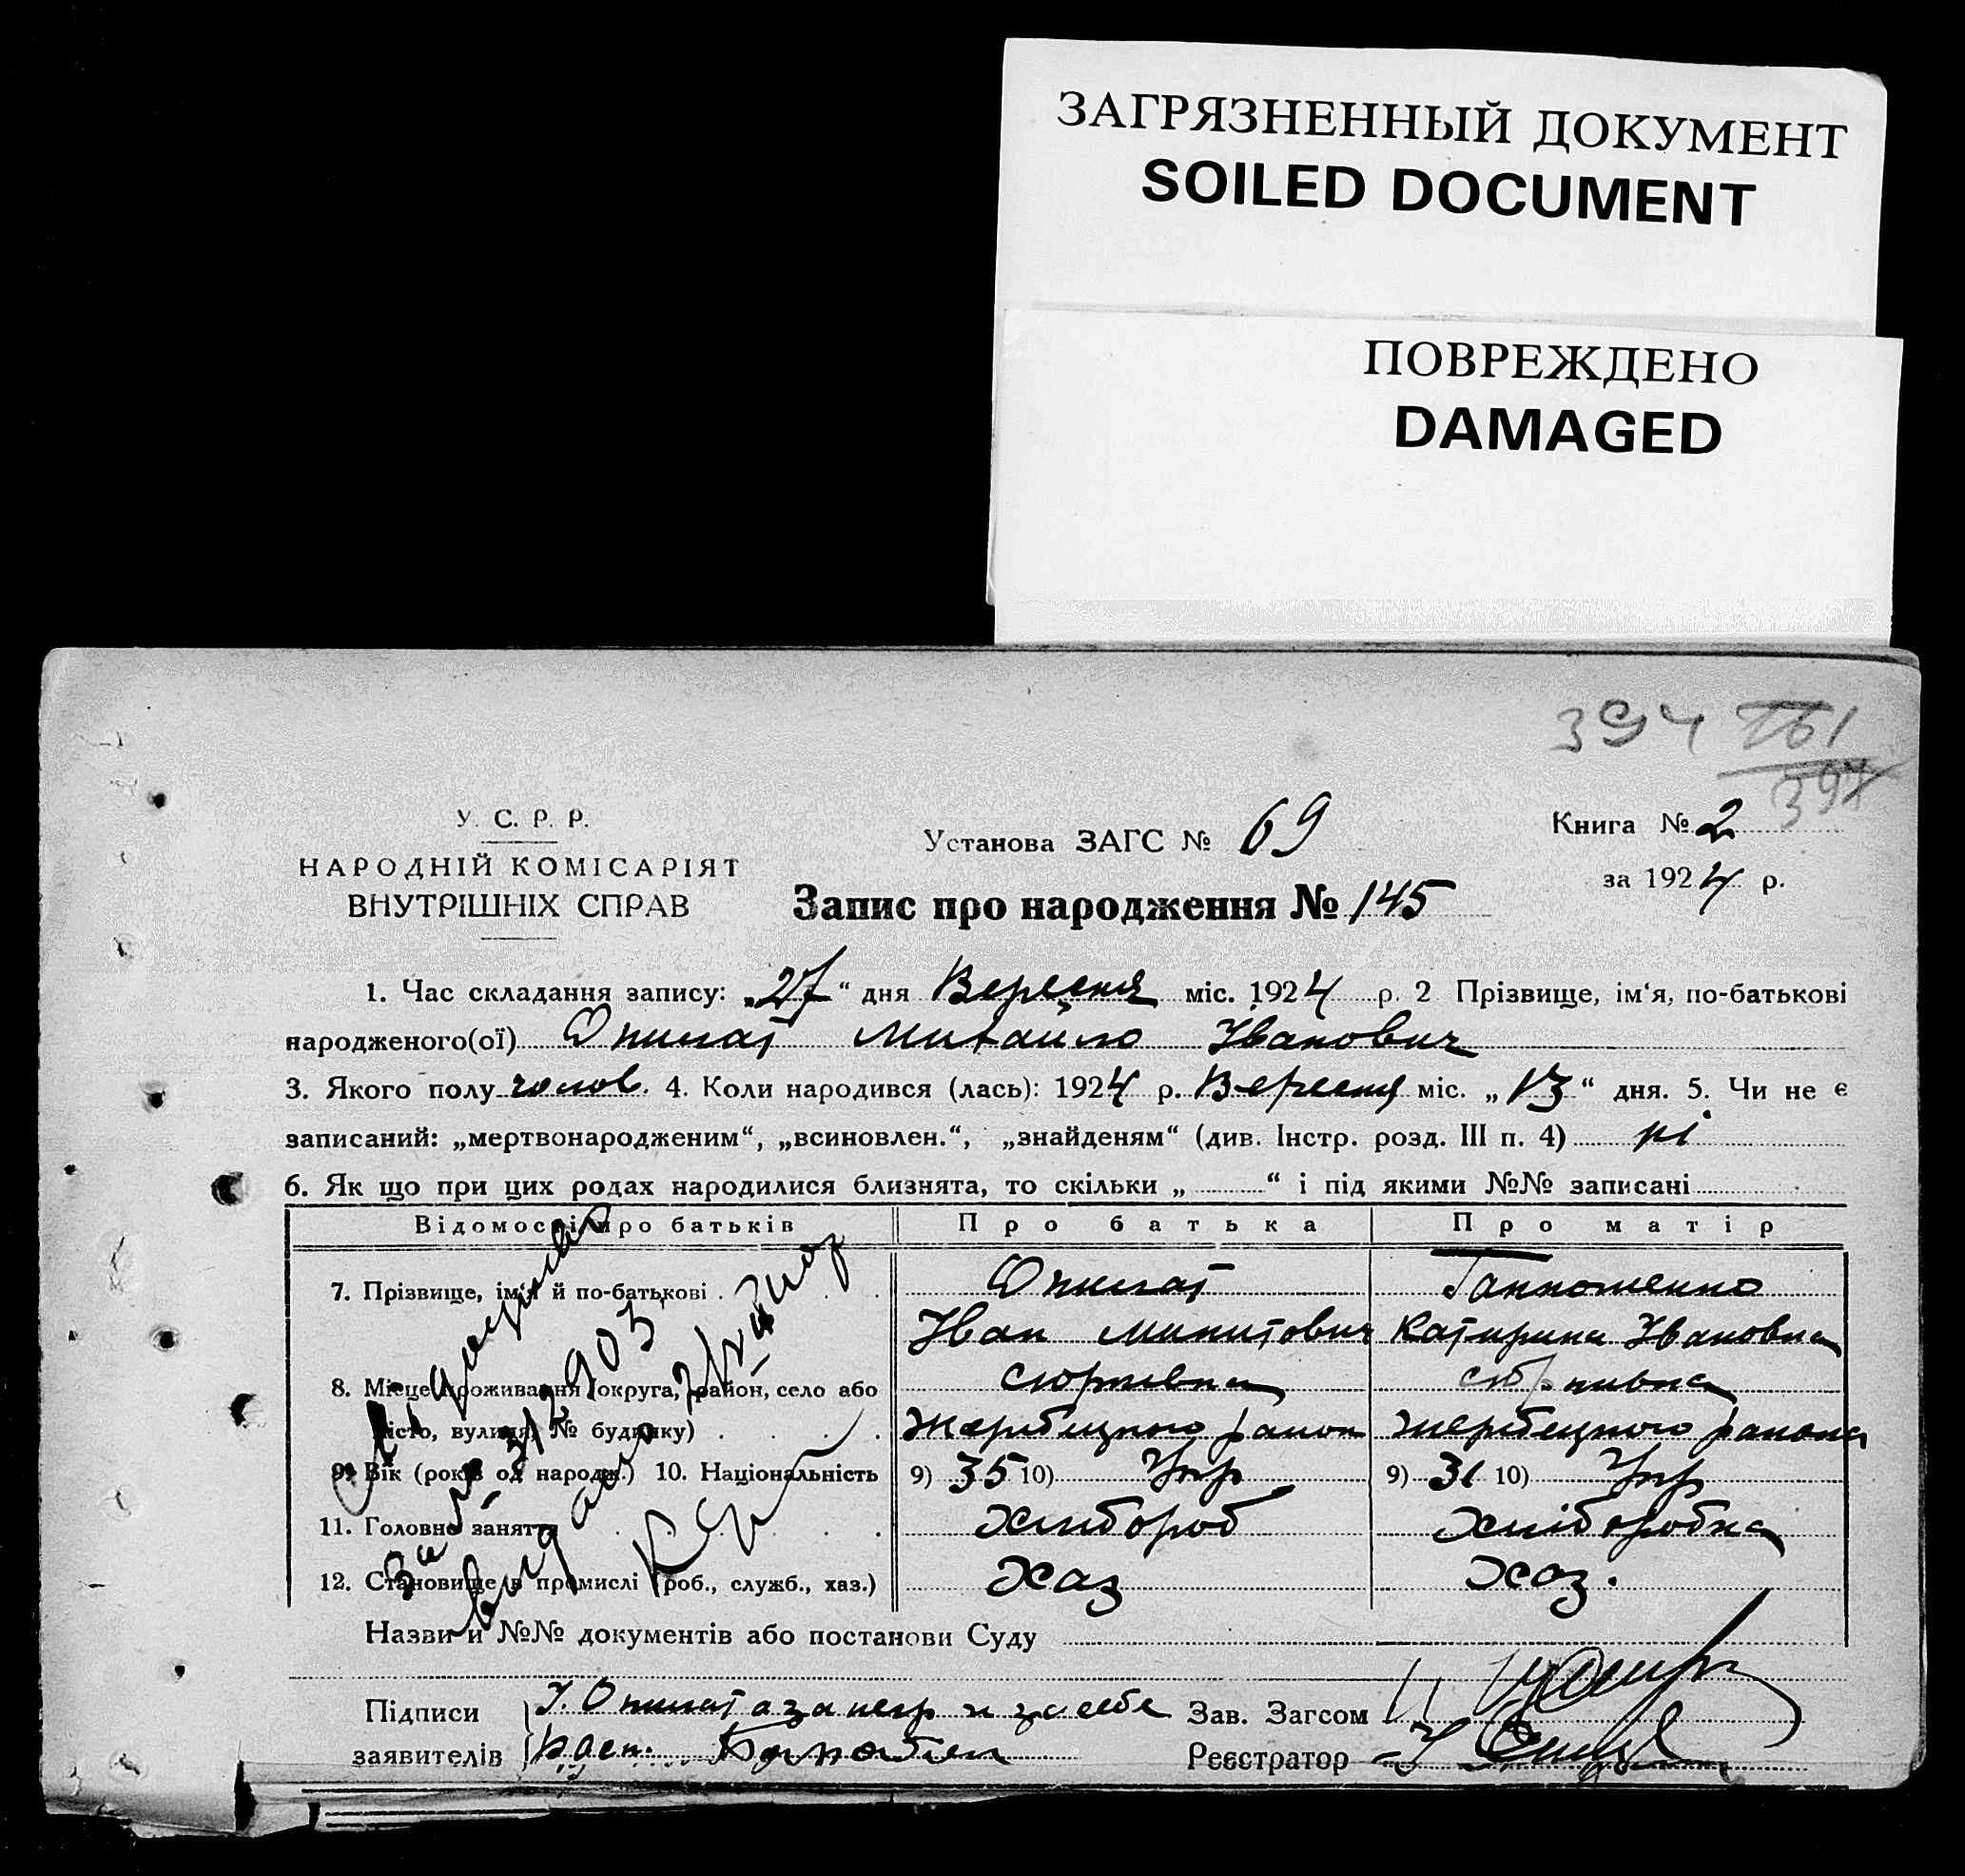 ЗАГРЯЗНЕННЫЙ ДОКУМЕНТ
SOILED DOCUMENT
ПОВРЕЖДЕНО
DAMAGED
394 161
394
У. С. Р. Р.
НАРОДНІЙ КОМІСАРІЯТ
ВНУТРІШНІХ СПРАВ
Установа ЗАГС № 69
Книга № 2
за 1924 р.
Запис про народження № 145
1. Час складання запису: „27“ дня Вересня міс. 1924 р. 2 Прізвище, ім‘я, по-батькові
народженого(ої) Опишат Михайло Іванович
3. Якого полу чолов. 4. Коли народився (лась): 1924 р. Вересня міс. „13“ дня. 5. Чи не є
записаний: „мертвонародженим“, „всиновлен.“, „знайденям“ (див. Інстр. розд. III п. 4) ні
6. Як що при цих родах народилися близнята, то скільки „ “ і під якими №№ записані
Відомості про батьків Про батька Про матір
7. Прізвище, ім‘я й по-батькові Опишат
Іван Микитович Катирина Ивановна
8. Місце проживання (округа, район, село або
місто, вулиця, № будинку)
Жеребецького район Жеребецького района
9. Вік (років од народж.) 10. Національність 9) 35 10) Укр 9) 31 10) Укр
11. Головне заняття Хлибороб Хліборобка
12. Становище в промислі (роб., служб., хаз.) Хаз Хаз.
Назви и №№ документів або постанови Суду
Підписи І. Опишат а за негр и за себе Зав. Загсом
заявителів Реєстратор